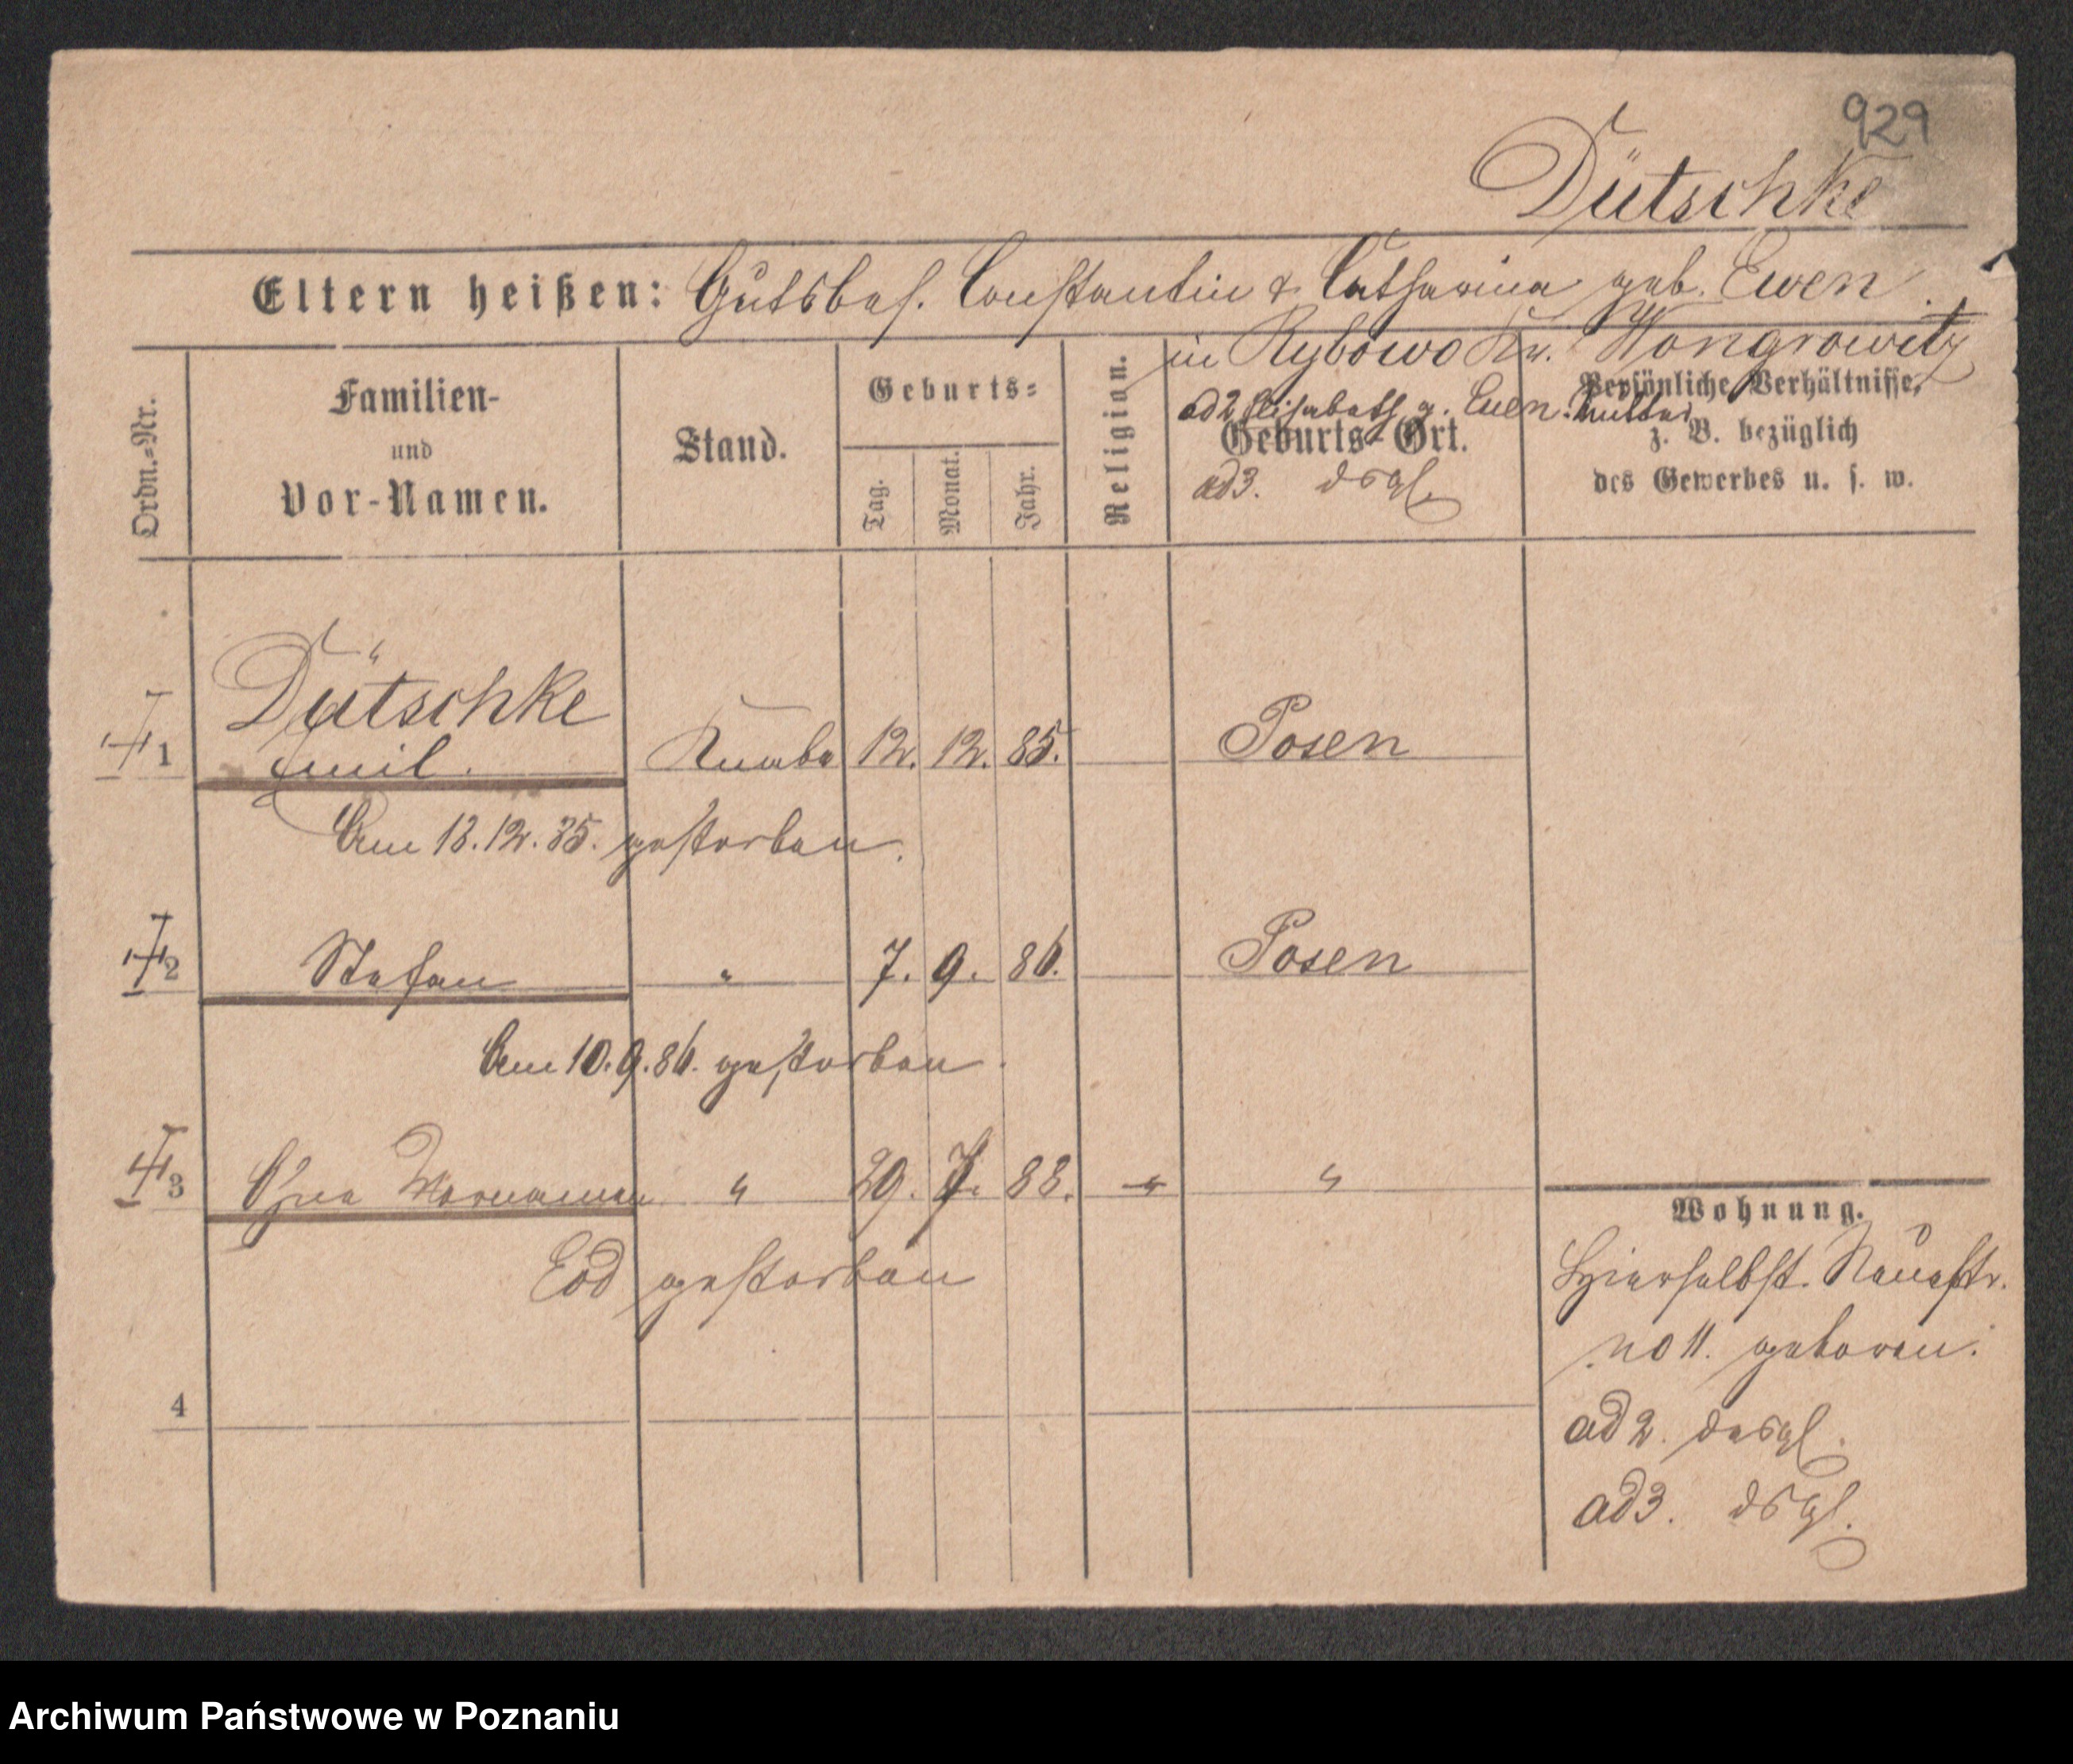 929
Dütschke
Eltern heißen: Gutsbes. Constantin & Catharina geb. Ewen.
in Rybowo Kr. Wongrowitz
ad 2 Elisabeth g. Ewen. Mutter
ad 3. dsgl.
Ordn.=Nr.
Familien-
und
Vor-Namen.
Stand.
Geburts=
Tag.
Monat.
Jahr.
Religion.
Geburts-Ort.
Persönliche Verhältnisse,
z. B. bezüglich
des Gewerbes u. s. w.
Dütschke
1 Emil. Knabe 12. 12. 85. Posen
Am 13.12.85. gestorben.
2 Stefan " 7. 9. 86. Posen
Am 10.9.86. gestorben.
3 Ohne Vornamen " 29. 7. 88. " "
Tod gestorben
4
Wohnung.
Hierselbst. Neuestr.
no 11. geboren.
ad 2. desgl.
ad 3. dsgl.
Archiwum Państwowe w Poznaniu